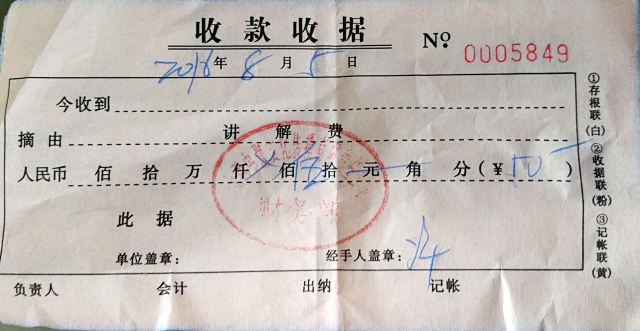 收款收据
No 0005849
2016年8月5日
今收到
摘由 讲解费
人民币 佰 拾 万 仟 佰 伍拾元 角 分(¥50—
此据
单位盖章： 经手人盖章：
负责人 会计 出纳 记帐
①存根联(白)②收据联(粉)③记帐联(黄)
财务